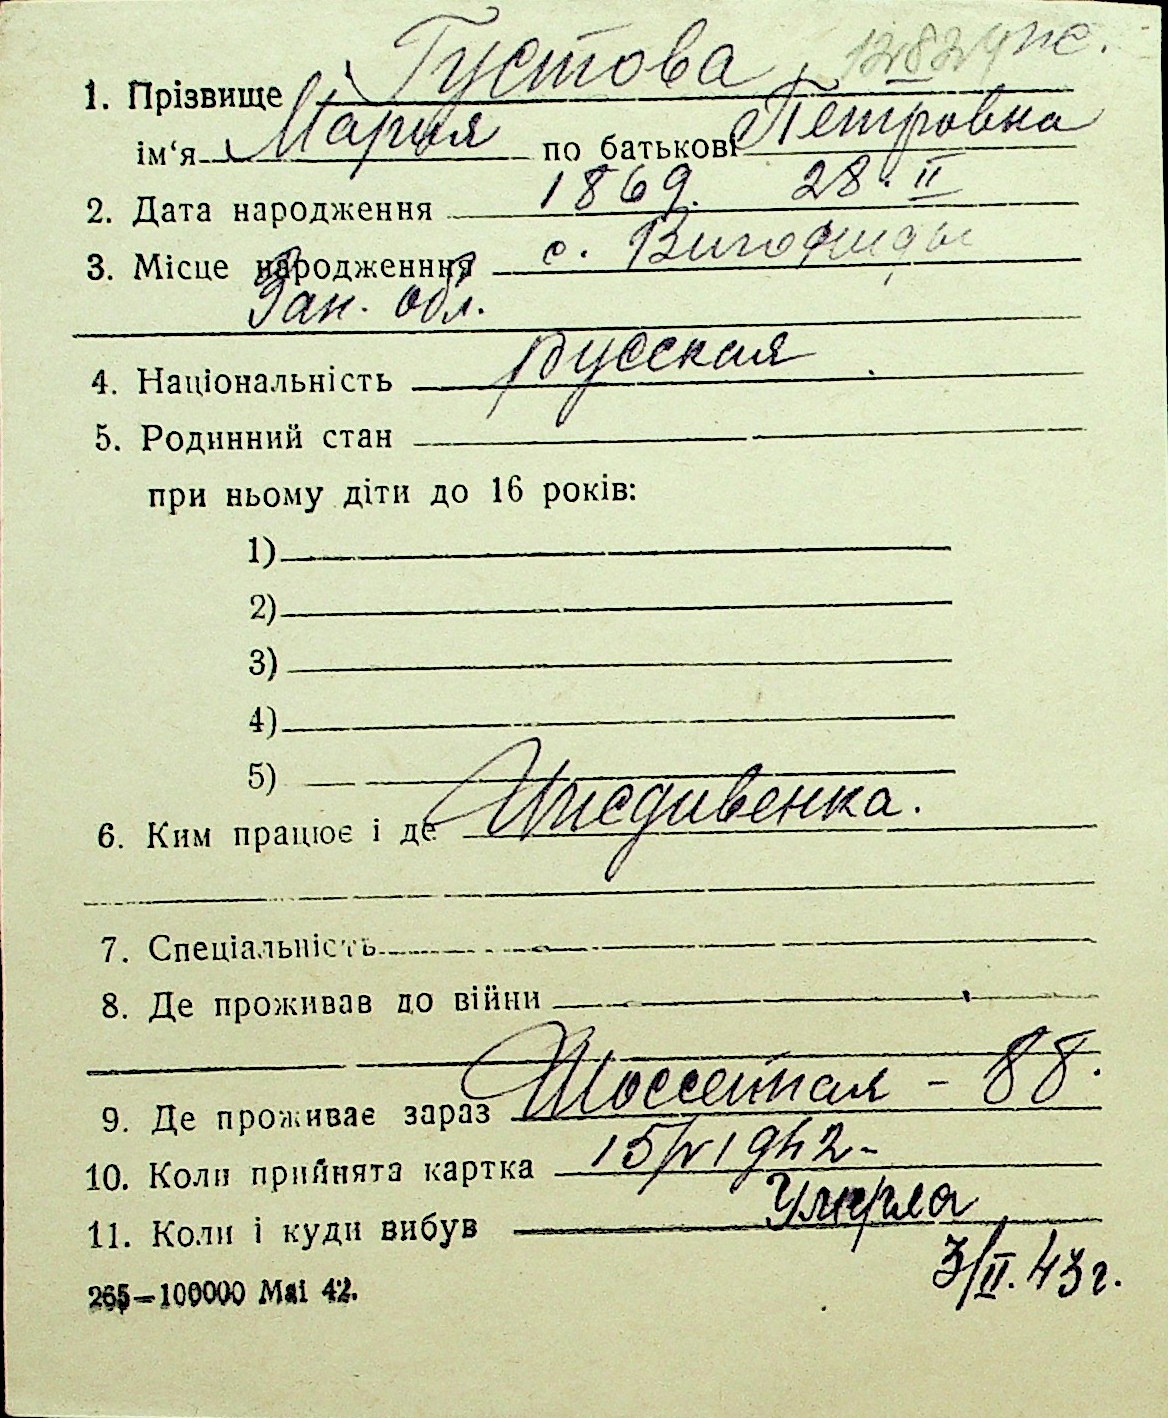 12824 ж.
1. Прізвище Густова
ім‘я Мария по батькові Петровна
2. Дата народження 1869. 28.II
3. Місце народженння с.
Зап. обл.
4. Національність Русская
5. Родинний стан
при ньому діти до 16 років:
1)
2)
3)
4)
5)
6. Ким працює і де Иждивенка.
7. Спеціальність
8. Де проживав до війни
9. Де проживає зараз Шоссейная - 88.
10. Коли прийнята картка 1942-
11. Коли і куди вибув Умерла
3/II.43г.
265—100000 Mai 42.